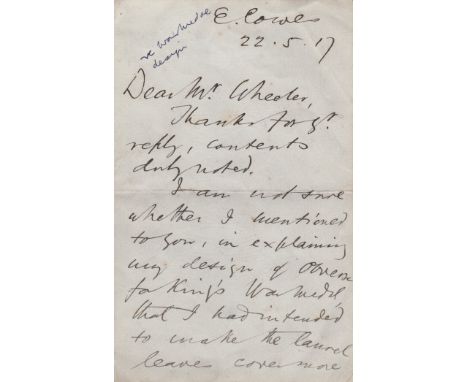 re war medal
design
E. Cowes
22.5.17
Dear Mr. Wheeler,
Thanks for yr.
reply, contents
duly noted.
I am not sure
whether I mentioned
to you, in explaining
my design of Obverse
for King's War medl,
that I had intended
to make the laurel
leaves cover more